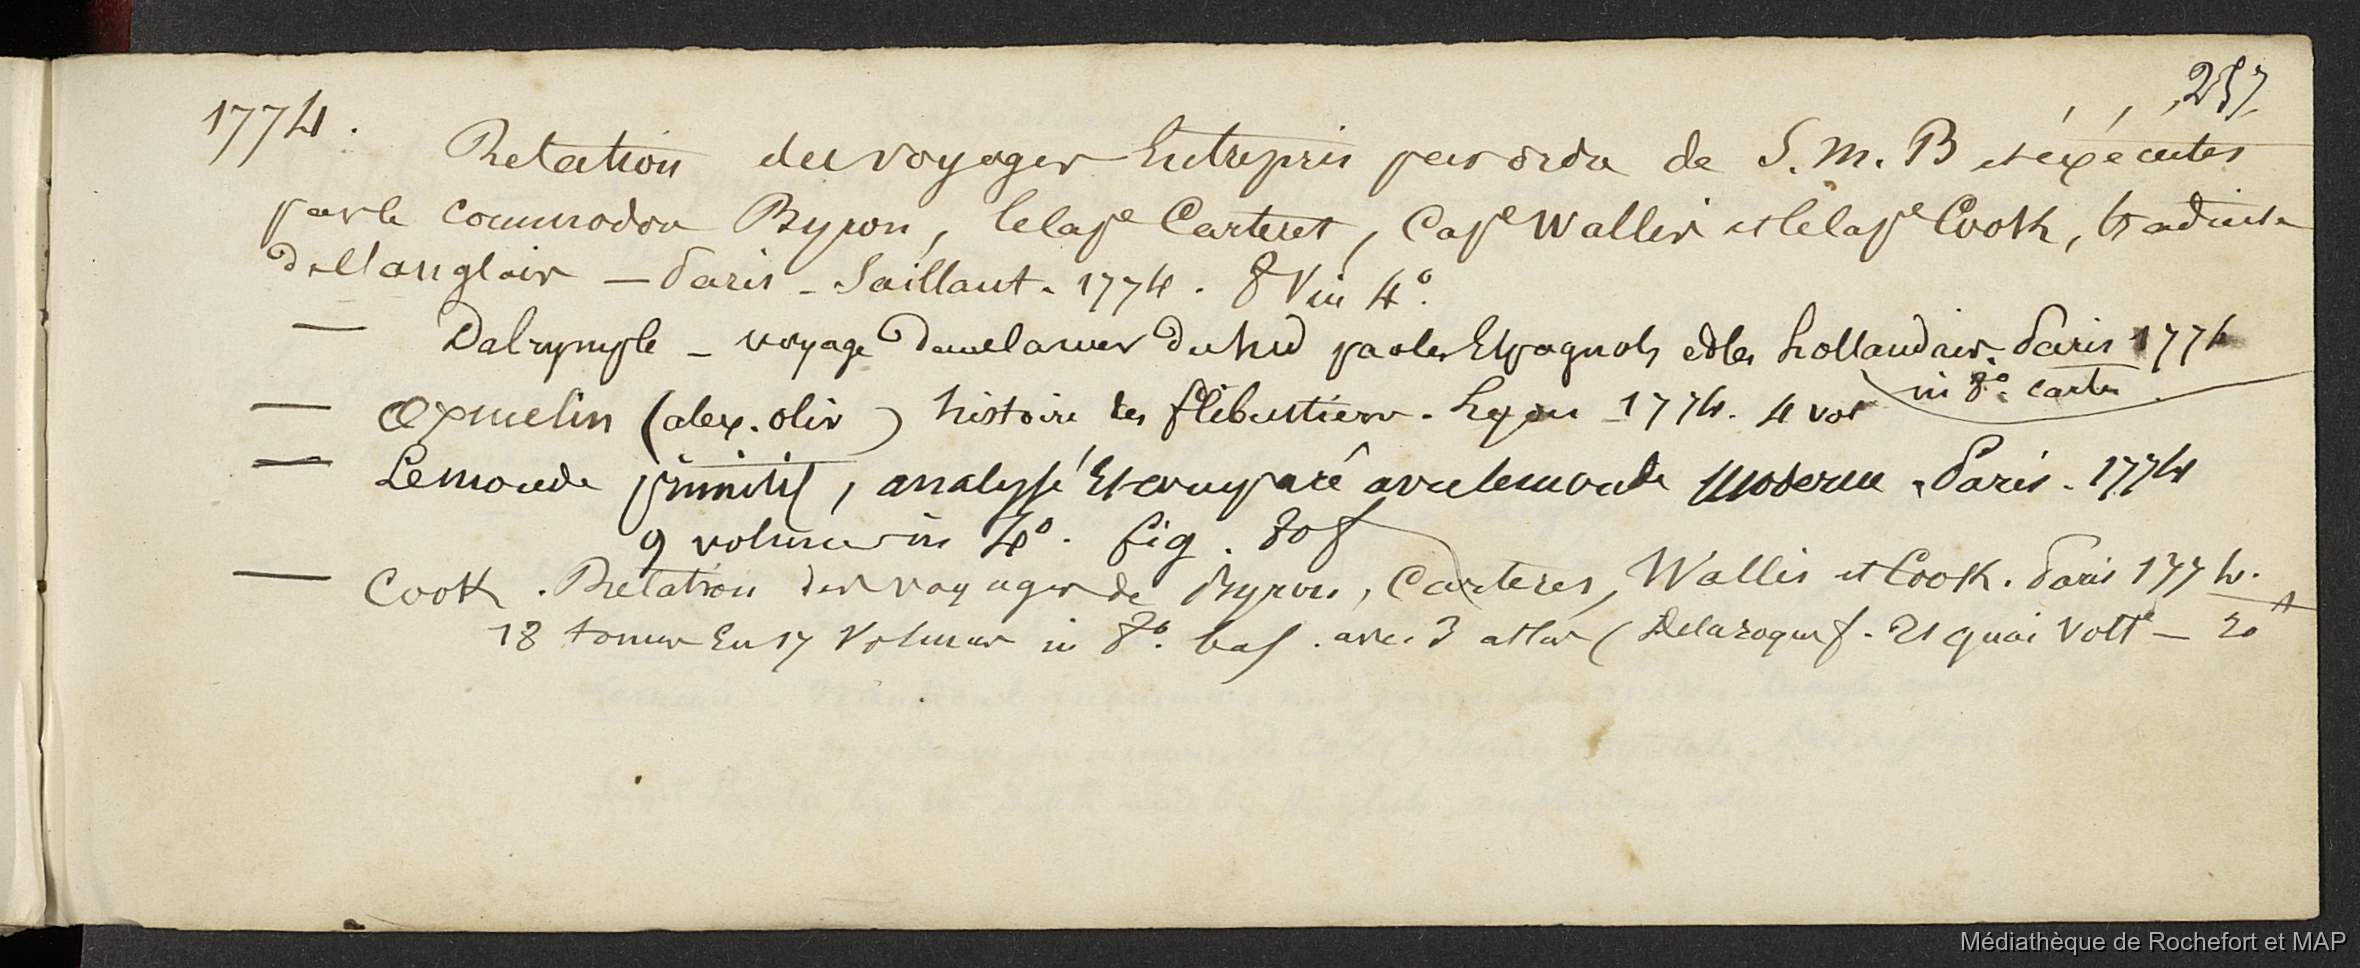 257
1774.
Relation des voyages Entrepris par ordre de S. M. B et éxécutés
par le commodore Byron, le Cap.e Carteret, Cap.e Wallis et le Cap.e Cook, traduite
de l'anglais — Paris - Saillant. 1774. 8 V in 4°.
— Dalrymple - voyage dans la mer du Sud par les Espagnols et les hollandais. Paris 1774
in 8°. cartes
— Oexmelin (alex. oliv) histoire des flibustiers. Lyon - 1774. 4 vol
— Le monde primitif, analysé Et comparé avec le monde moderne. Paris. 1774
9 volumes in 4°. fig. 80 f
— Cook. Relation des voyages de Byron, Carteret, Wallis et Cook. Paris 1774.
18 tomes En 17 Volumes in 8°. bas. avec 3 atlas (Delaroque f. 21 quai Volt.e — 20 f
Médiathèque de Rochefort et MAP